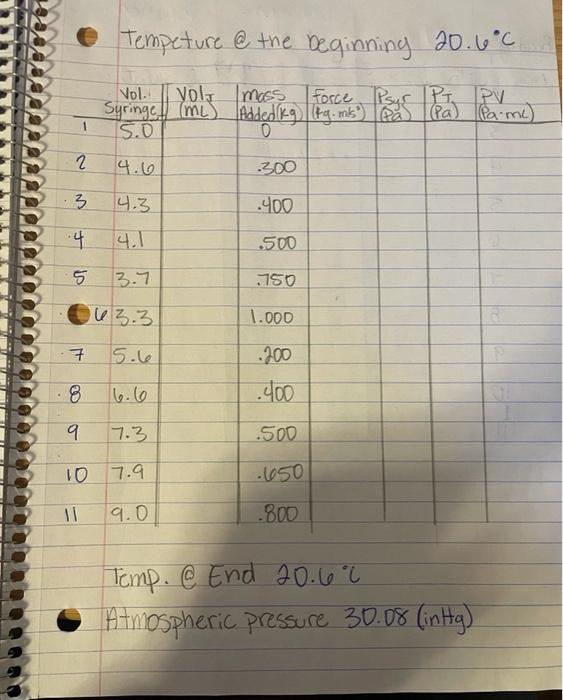 Tempeture @ the beginning 20.6°C
Vol. Syringe VolT (mL) mass Added (kg) Force (kg·m/s²) Psyr (Pa) PT (Pa) PV (Pa·mL)
1 5.0 0
2 4.6 .300
3 4.3 .400
4 4.1 .500
5 3.7 .750
6 3.3 1.000
7 5.6 .200
8 6.6 .400
9 7.3 .500
10 7.9 .650
11 9.0 .800
Temp. @ End 20.6°C
Atmospheric pressure 30.08 (inHg)